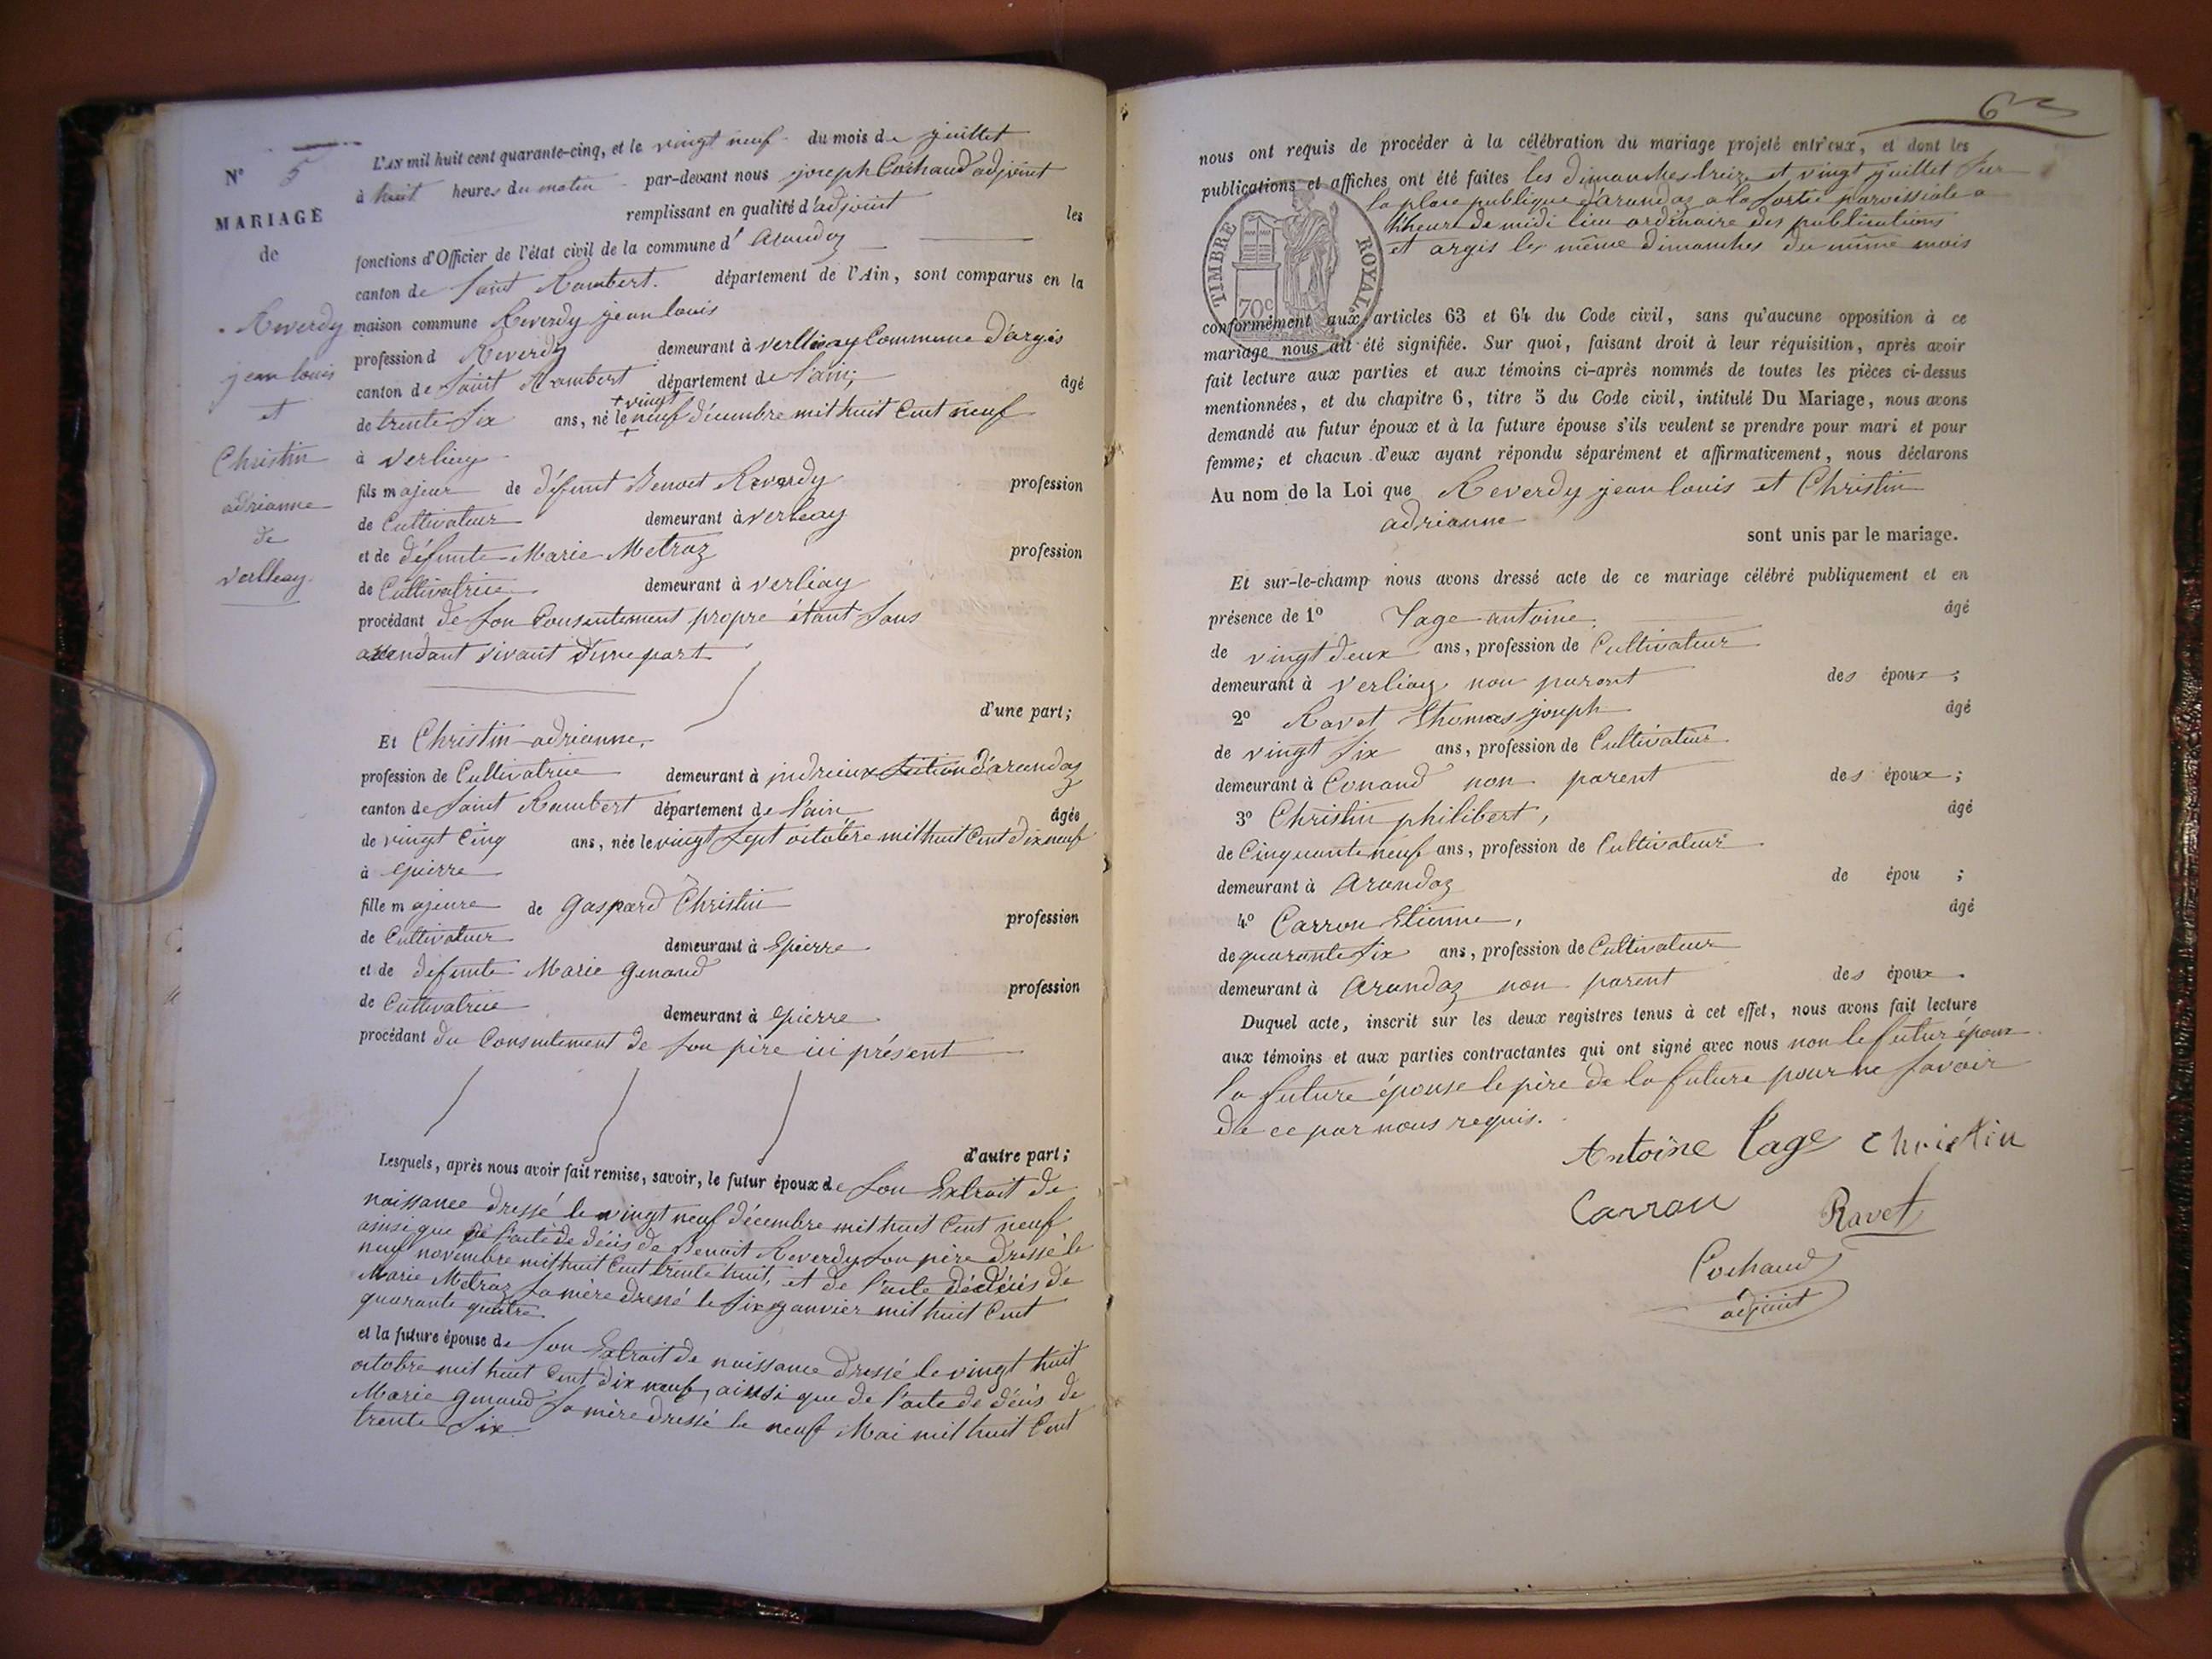 N° 5
MARIAGE
de
Reverdy
jean louis
et
Christin
adrianne
de
verlleay
L'AN mil huit cent quarante-cinq, et le vingt neuf du mois de juillet
à huit heures du matin par-devant nous joseph Cochaud adjoint
remplissant en qualité d'adjoint les
fonctions d'Officier de l'état civil de la commune d' Arandaz
canton de Saint Rambert. département de l'Ain, sont comparus en la
maison commune Reverdy jean louis
profession d Reverdy demeurant à verlleay Commune d'argis
canton de Saint Rambert département de l'ain, âgé
+ vingt
de trente six ans, né le + neuf décembre mil huit Cent neuf
à verleay
fils majeur de défunt Benoit Reverdy profession
de Cultivateur demeurant à verleay
et de défunte Marie Metraz profession
de Cultivatrice demeurant à verleay
procédant de son Consentement propre étant sans
assendant vivant d'une part
d'une part;
Et Christin adrianne
profession de Cultivatrice demeurant à indrieux section d'arandaz
canton de Saint Rambert département de l'ain âgée
de vingt cinq ans, née le vingt sept octobre mil huit Cent dix neuf
à epierre
fille majeure de gaspard Christin profession
de Cultivateur demeurant à Epierre
et de defunte Marie genaud profession
de Cultivatrice demeurant à epierre
procédant du Consentement de son père ici présent
d'autre part;
Lesquels, après nous avoir fait remise, savoir, le futur époux de son Extrait de
naissance dressé le vingt neuf décembre mil huit Cent neuf
ainsi que de l'acte de décis de Benoit Reverdy son père dressé le
neuf novembre mil huit Cent trente huit, et de l'acte de décis de
Marie Metraz sa mère dressé le six janvier mil huit Cent
quarante quatre
et la future épouse de son Extrait de naissance dressé le vingt huit
octobre mil huit Cent dix neuf, ainsi que de l'acte de décis de
Marie genaud sa mère dressé le neuf Mai mil huit Cent
trente six
63
nous ont requis de procéder à la célébration du mariage projeté entr'eux, et dont les
publications et affiches ont été faites les dimanches treize et vingt juillet sur
la place publique d'arandaz a la sortie parroissiale a
l'heure de midi lieu ordinaire des publications
et argis les même dimanches du même mois
TIMBRE ROYAL
70c
conformément aux articles 63 et 64 du Code civil, sans qu'aucune opposition à ce
mariage nous ait été signifiée. Sur quoi, faisant droit à leur réquisition, après avoir
fait lecture aux parties et aux témoins ci-après nommés de toutes les pièces ci-dessus
mentionnées, et du chapitre 6, titre 5 du Code civil, intitulé Du Mariage, nous avons
demandé au futur époux et à la future épouse s'ils veulent se prendre pour mari et pour
femme; et chacun d'eux ayant répondu séparément et affirmativement, nous déclarons
Au nom de la Loi que Reverdy jean louis et Christin
adrianne
sont unis par le mariage.
Et sur-le-champ nous avons dressé acte de ce mariage célébré publiquement et en
présence de 1° Tage antoine. âgé
de vingt deux ans, profession de Cultivateur
demeurant à verleay non parent des époux;
2° Ravet Thomas joseph âgé
de vingt six ans, profession de Cultivateur
demeurant à Conand non parent des époux;
3° Christin philibert, âgé
de Cinquante neuf ans, profession de Cultivateur
demeurant à Arandaz de épou ;
4° Carron Etienne, âgé
de quarante six ans, profession de Cultivateur
demeurant à Arandaz non parent des époux.
Duquel acte, inscrit sur les deux registres tenus à cet effet, nous avons fait lecture
aux témoins et aux parties contractantes qui ont signé avec nous non le futur époux
la future épouse le père de la future pour ne savoir
de ce par nous requis.
Antoine tage christin
Carron Ravet
Cochaud
adjoint